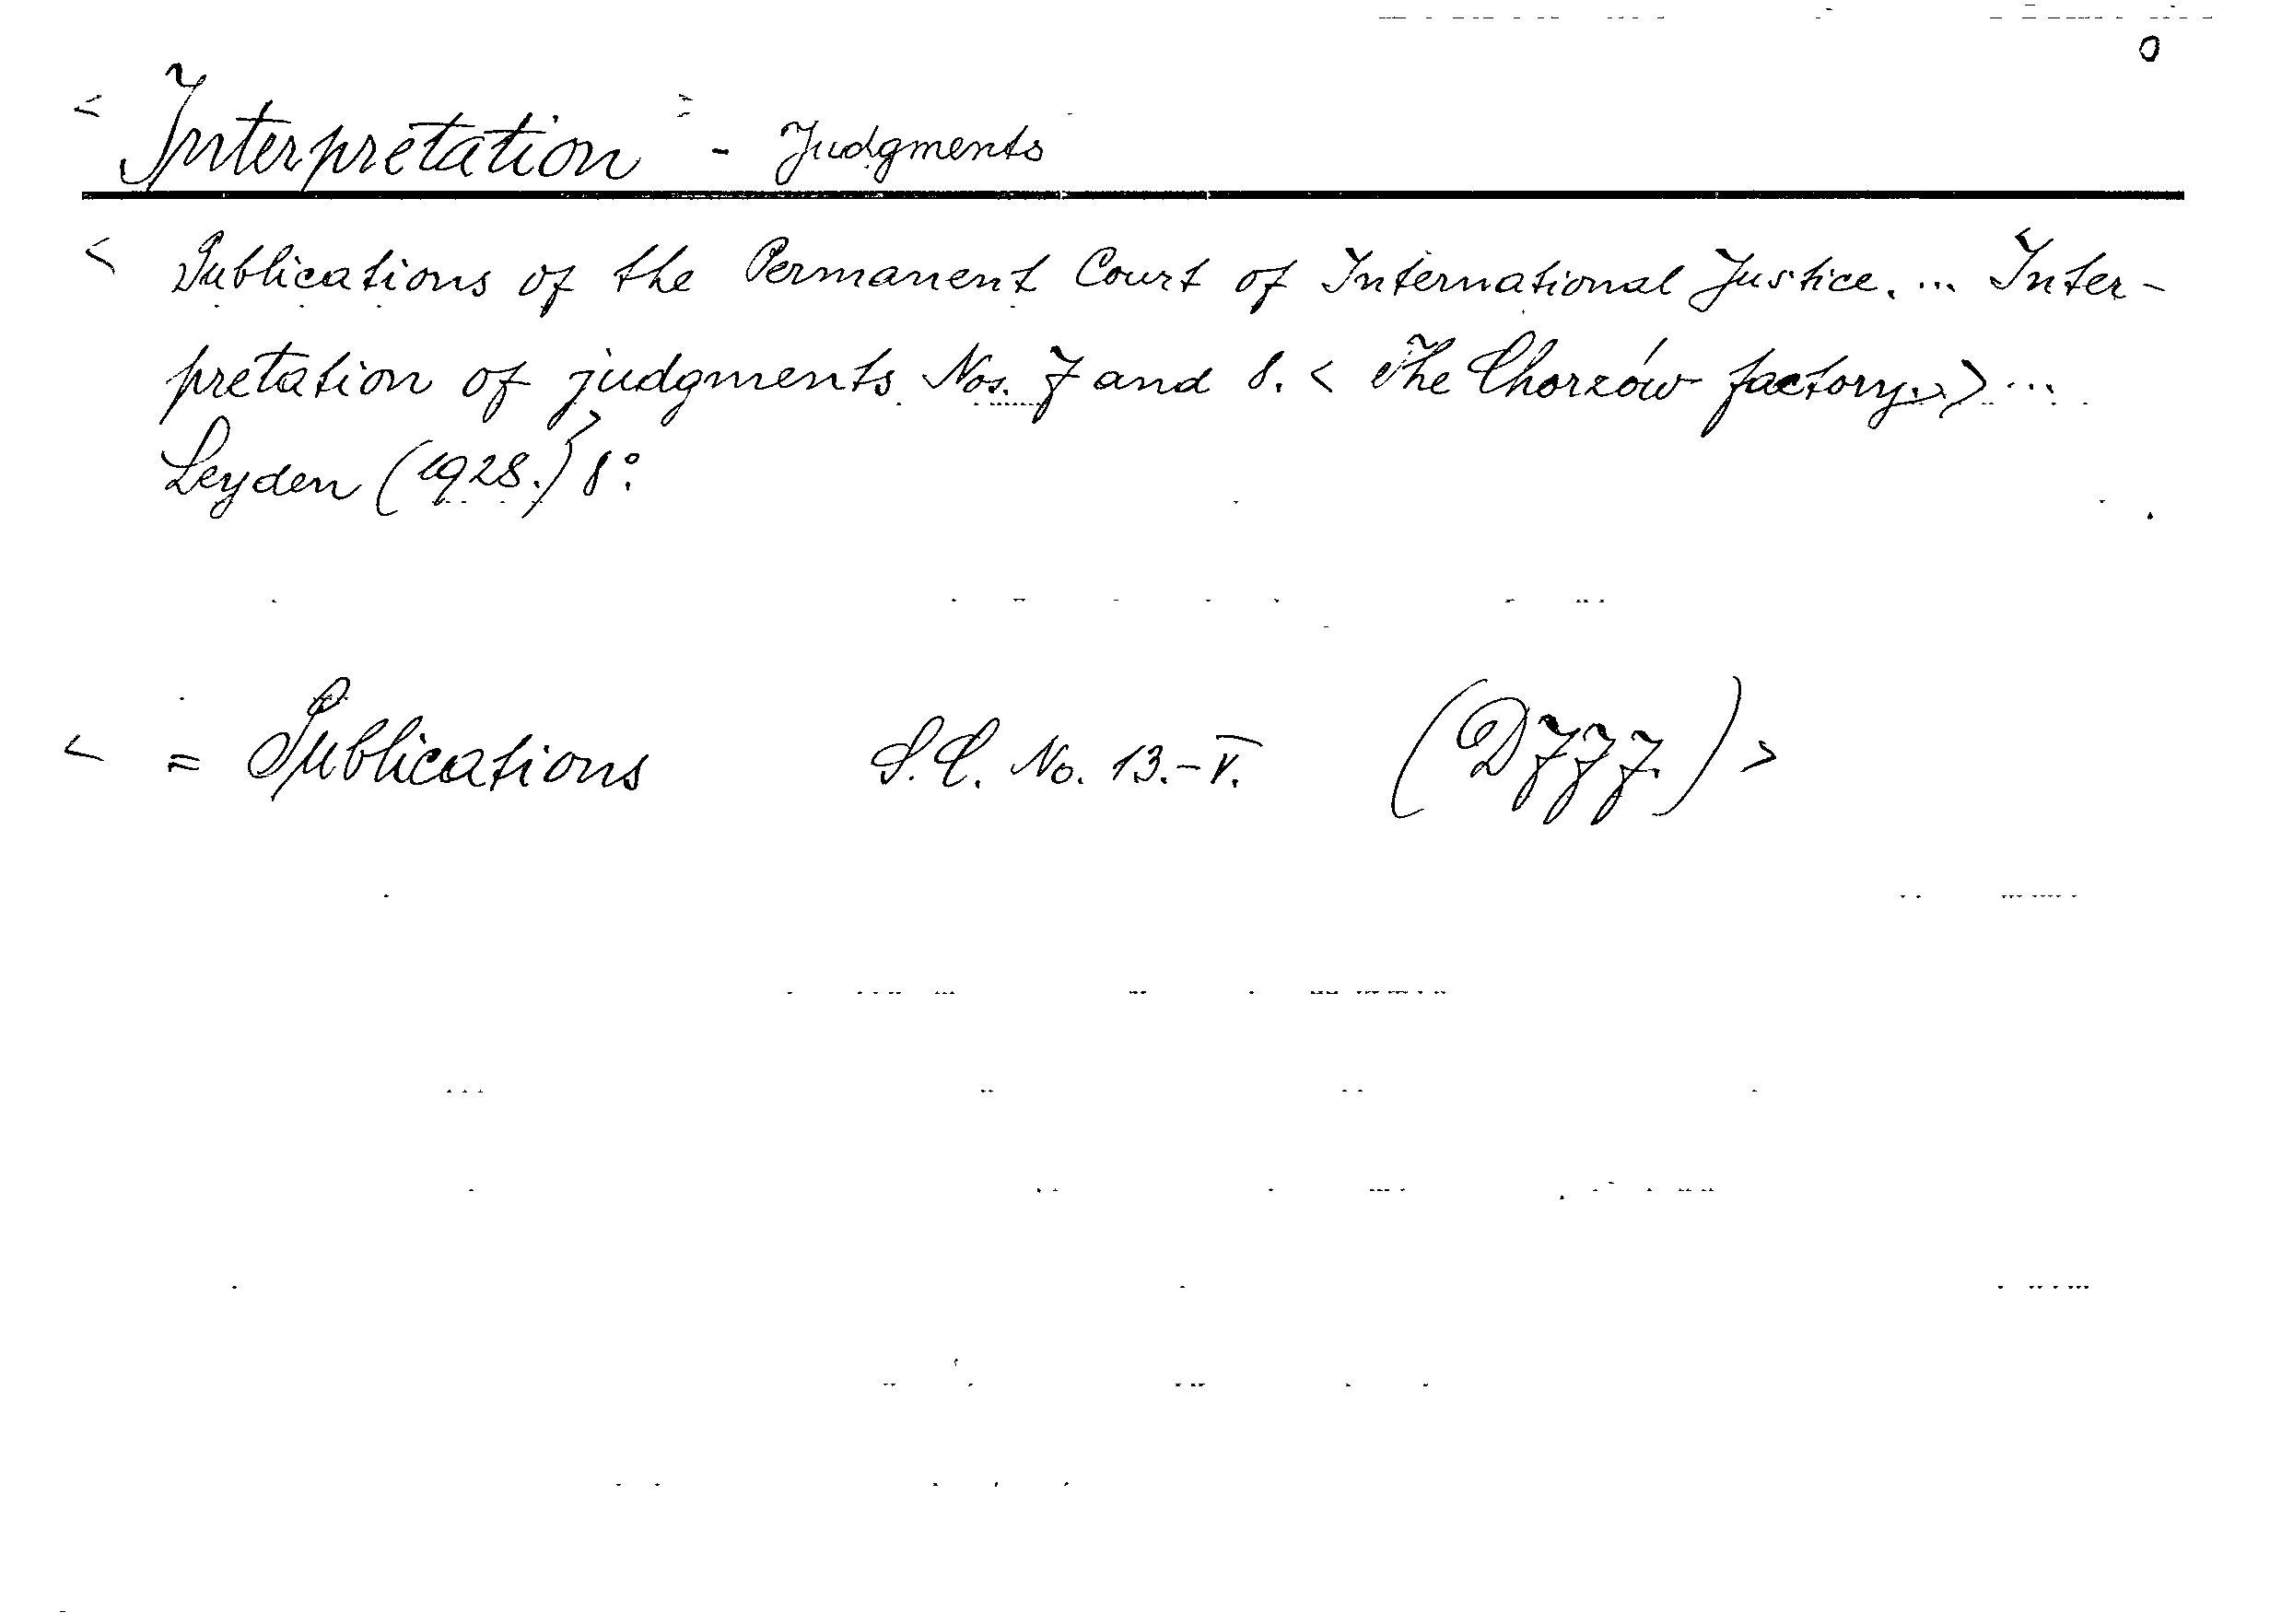 0
< Interpretation > - Judgments
< Publications of the Permanent Court of International Justice. ... Inter-
pretation of judgments Nos. 7 and 8. < The Chorzów factory. > > ...
Leyden (1928.) > 8°.
< = Publications S.C. No. 13.-V. (D777.) >